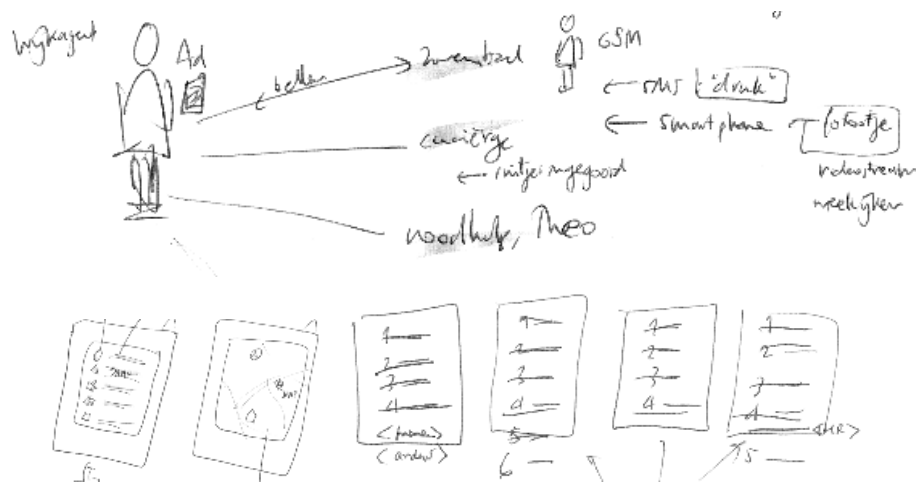 Wijkagent
Ad
bellen
Zwembad
GSM
← SMS "druk"
← Smartphone
fotootje
videostream
meekijken
conciërge
← ruitje ingegooid
noodhulp, Theo
1
2
3
4
1
2
3
4
5
6
1
2
3
4
1
2
3
4
5